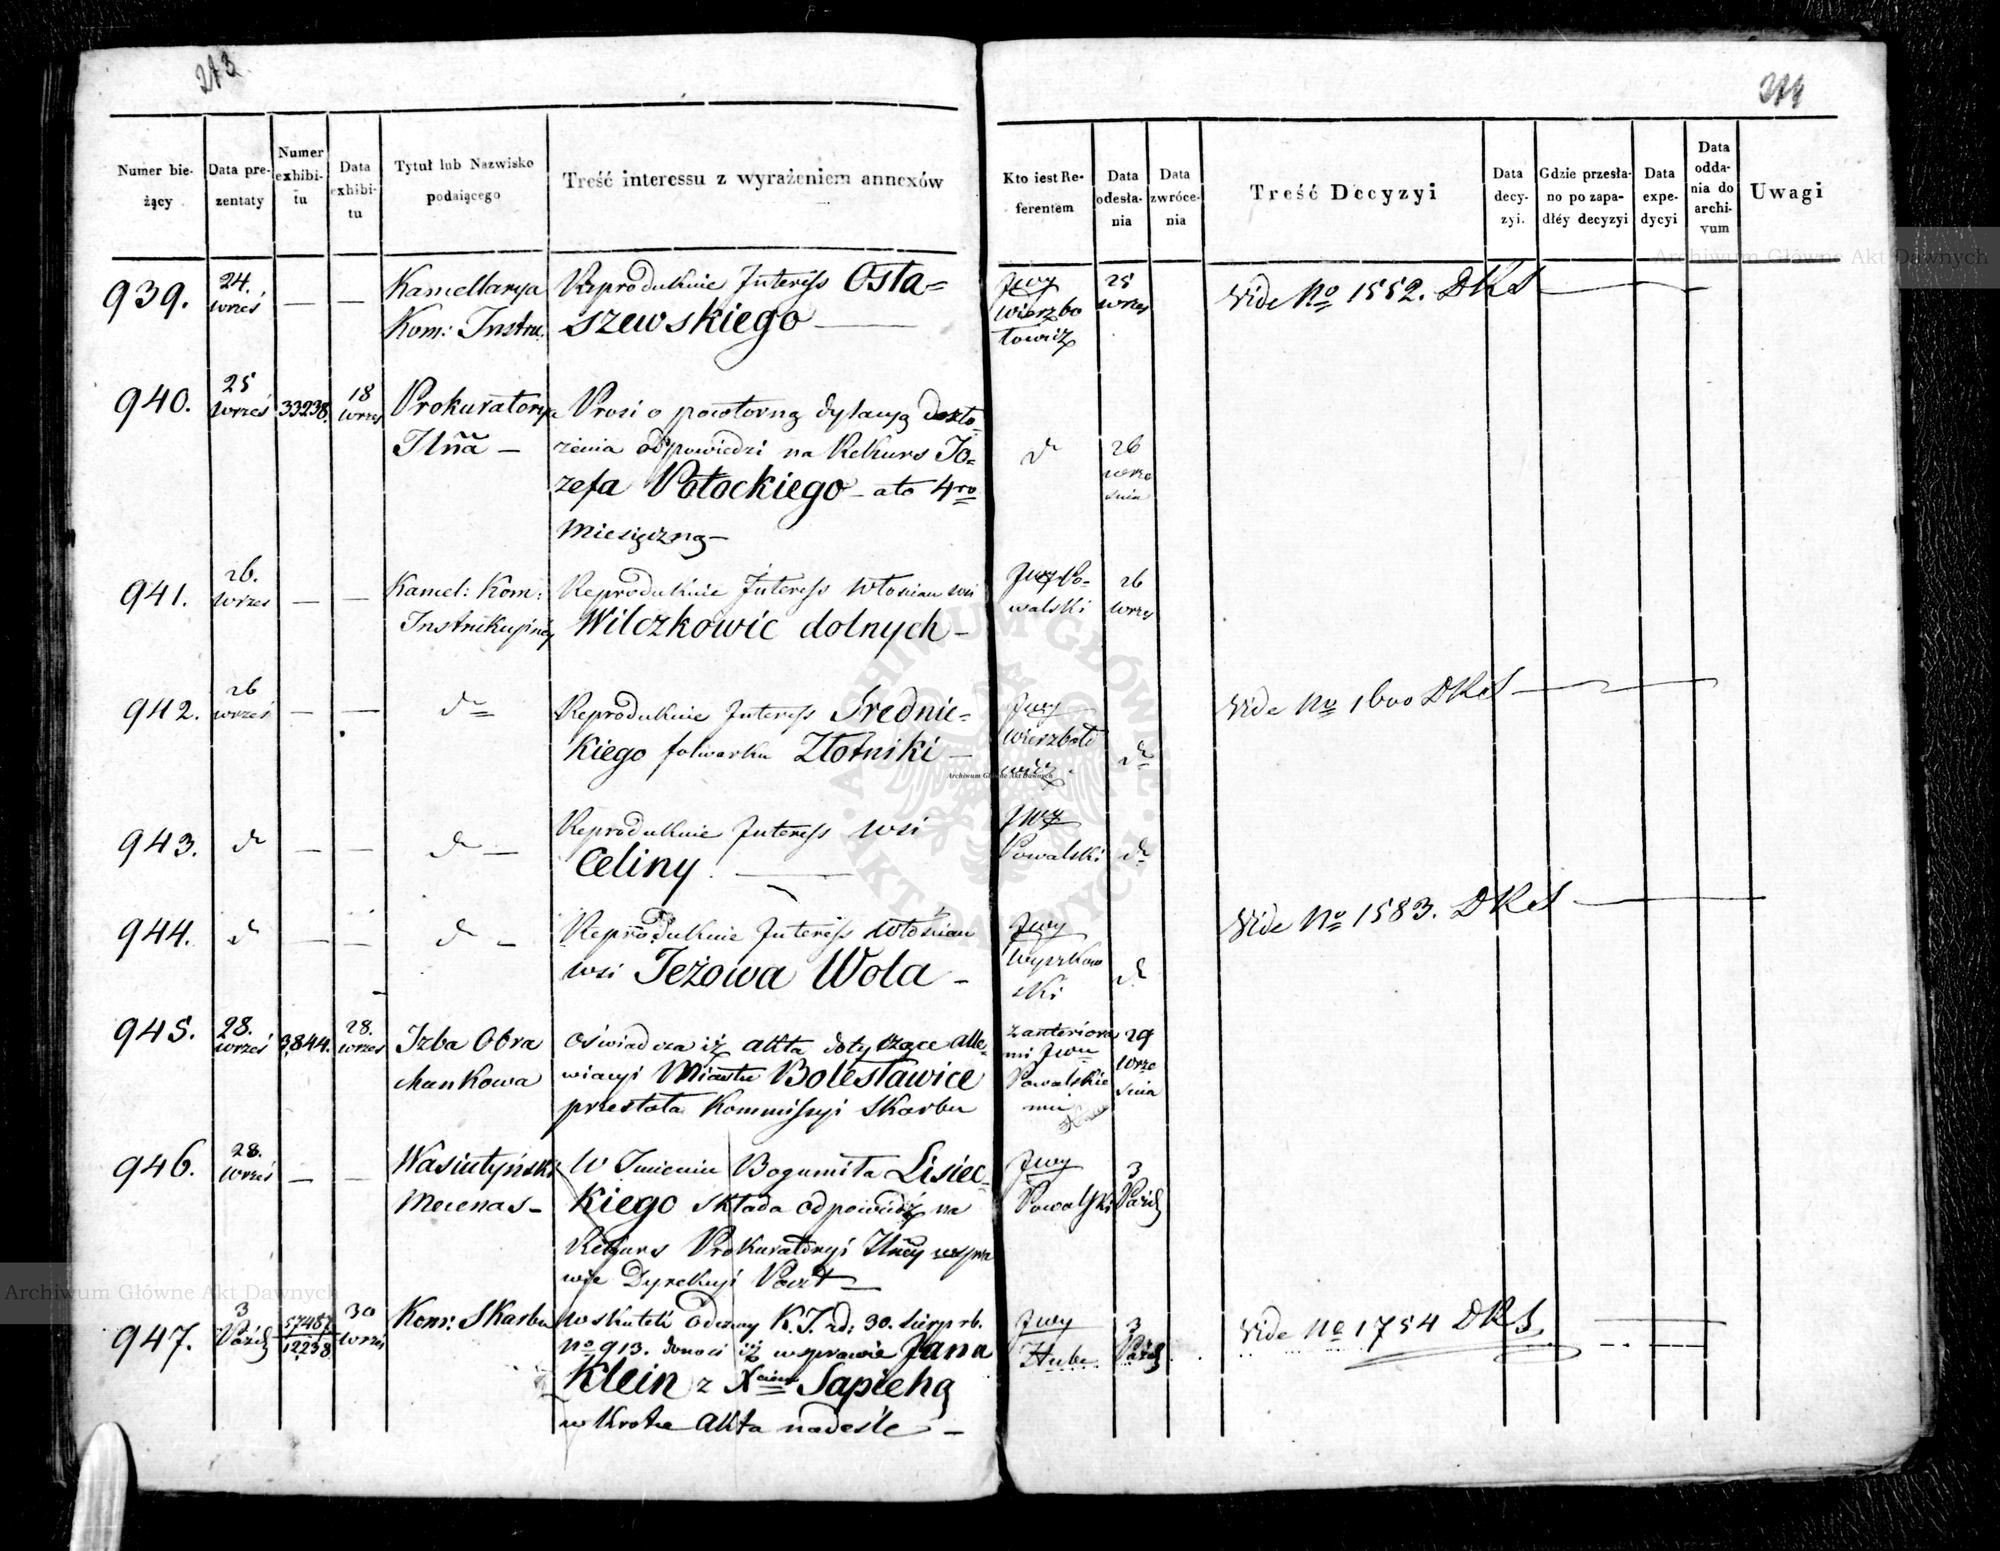 273
274
Numer bie-
żący
Data pre-
zentaty
Numer
exhibi-
tu
Data
exhibi-
tu
Tytuł lub Nazwisko
podaiącego
Treść interessu z wyrażeniem annexów
Kto iest Re-
ferentem
Data
odesła-
nia
Data
zwróce-
nia
Treść Decyzyi
Data
decy-
zyi.
Gdzie przesła-
no po zapa-
dłéy decyzyi
Data
expe-
dycyi
Data
odda-
nia do
archi-
vum
Uwagi
939.
24.
wrześ
Kancellarya
Kom: Instru.
Reprodukuie Interess Osta=
szewskiego
JWy
Wierzbo
łowicz
25
wrześ
Vide No 1552. DKS
940.
25
wrześ
33238.
18
wrześ
Prokuratorya
Prosi o powtorną dylacyą do zło-
żenia odpowiedzi na Rekurs Jó=
zefa Potockiego - ato 4ro
Miesięczną -
do
26
wrze
śnia
941.
26.
wrześ
Kancel: Kom:
Instrukcyiney
Reprodukuie Interess włościan wsi
Wilczkowic dolnych -
JWy Ko=
walski
26
wrześ
942.
26
wrześ
do
Reprodukuie Interess Srednic=
kiego folwarku Złotniki -
JWy
Wierzboło
wicz
do
Vide No 1600 DKS
943.
do
do -
Reprodukuie Interess wsi
Celiny.
JWy
Kowalski
do
944.
do
do -
Reprodukuie Interess włościan
wsi Jeżowa Wola -
JWy
Wyszkow
ski
do
Vide No 1583. DKS
945.
28.
wrześ
3844.
28.
wrześ
Izba Obra
chunkowa
oświadcza iż akta dotyczące alle-
wiacyi Miasta Bolesławice
przesłała Kommissyi Skarbu
z anteriora
mi JWu
Kowalskie
mu
29
wrze
śnia
946.
28.
wrześ
Wasiutyński
Mecenas -
W Imieniu Bogumiła Lisiec-
kiego składa odpowiedź na
Rekurs Prokuratoryi w spra
wie Dyrekcyi Poczt -
JWy
Kowalski
3
Paźdz
947.
3
Paźdz
57487
12238
30
wrześ
Kom: Skarbu
w skutek odezwy K.I. zd: 30. sierp rb.
No 913. donosi iż w sprawie Jana
Klein z Xciem Sapiehą
w krotce akta nadeśle -
JWy
Hube
3
Paźdz
Vide No 1754 DKS
Archiwum Główne Akt Dawnych
Archiwum Główne Akt Dawnych
Archiwum Główne Akt Dawnych
ARCHIWUM GŁÓWNE AKT DAWNYCH